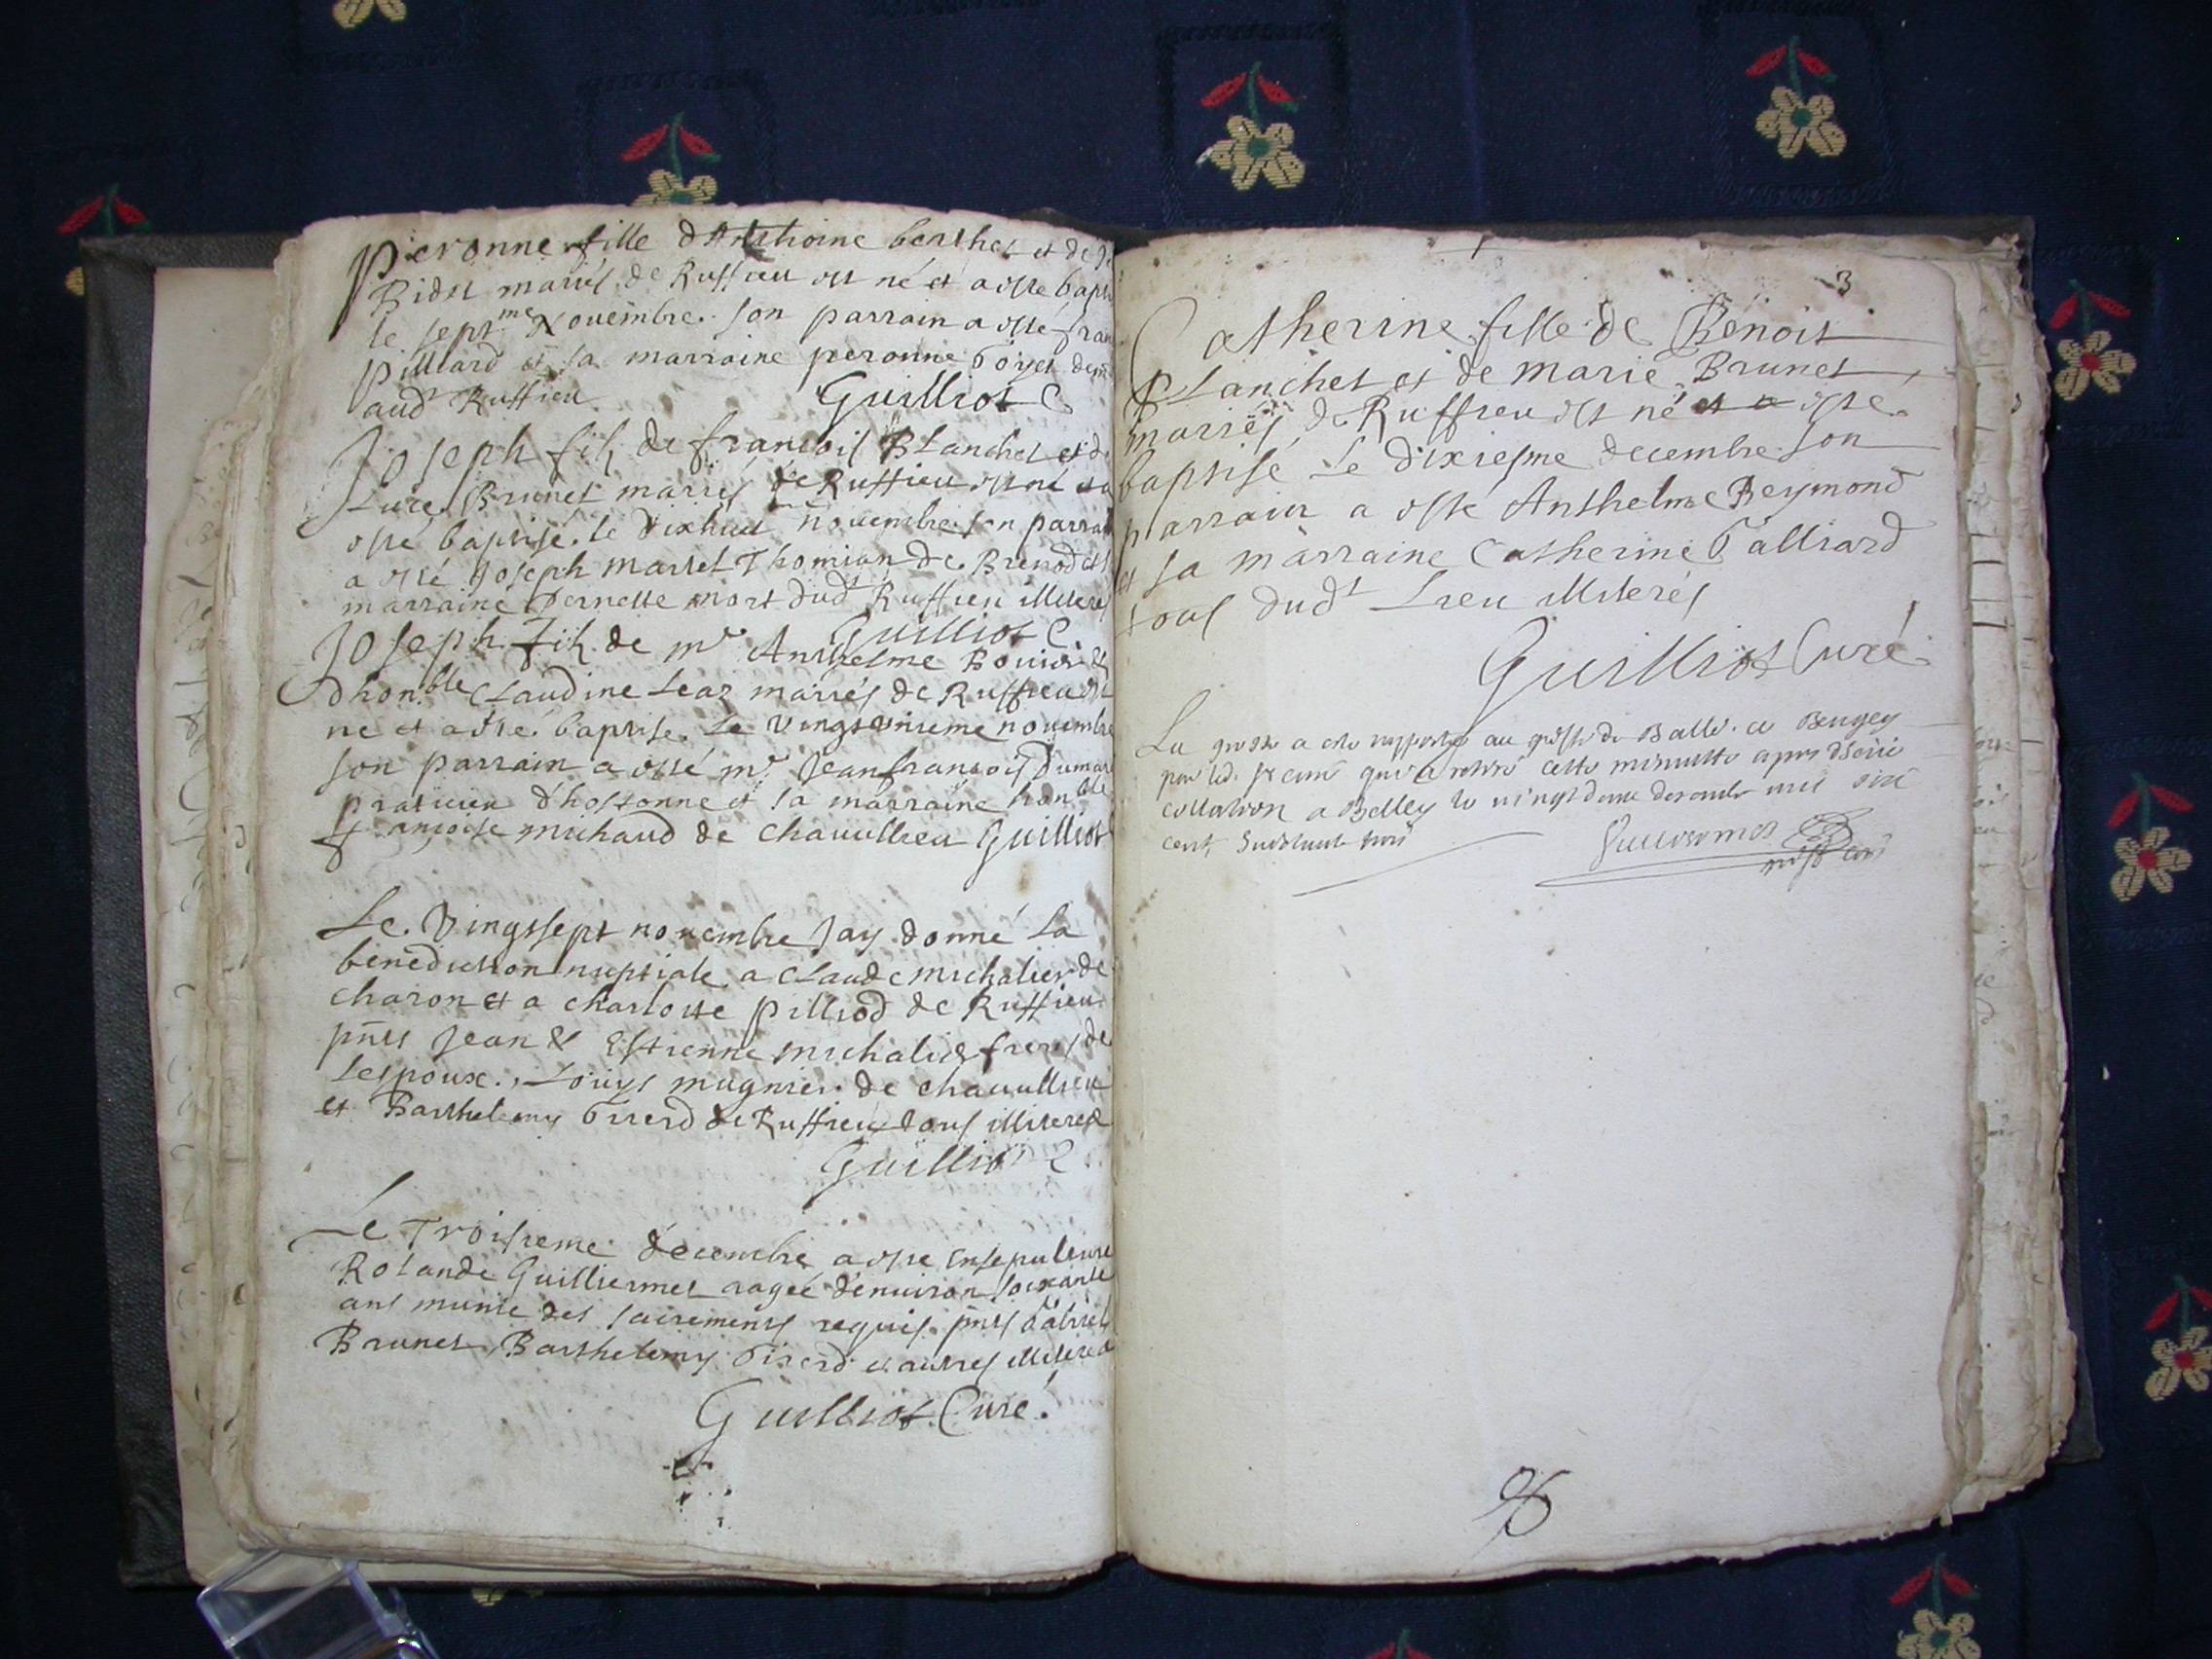 Peronne fille dAnthoine berthet et de
Bidet mariés de Ruffieu est né et a esté bapt
le sept.me Novembre. son parrain a esté fran
pilliard et sa marraine peronne
aud.t Ruffieu
Guilliot C
Joseph filz de francois Blanchet et d
Luce Brunet mariés de Ruffieu est né et a
esté baptisé. le dixhuit novembre. son parrain
a esté Joseph Martel Thomian de Brenod et
marraine Pernette mort dud.t Ruffieu illiteres
Guilliot C.
Joseph filz de m.r Anthelme Bouvier &
dhon.ble Claudine Leaz mariés de Ruffieu est
né et a esté baptisé. Le vingtunieme novembre
son parrain a esté m.r Jeanfrancois dumar
praticien dhostonne et sa marraine hon.ble
francoise michaud de chavillieu Guilliot
Le vingtsept novembre Jay donné la
benediction nuptiale a claude michalier de
charon et a charlotte pilliod de Ruffieu
pñts Jean & Estienne michalier freres de
lespoux., Louys mugnier de chavillieu
et Barthelemy Tirerd de Ruffieu tous illiteres
Guilliot C
Le Troisieme decembre a esté ensepulturé
Rolande Guilliermet aagée denviron soixante
ans munie des sacremens requis. pñts Gabriel
Brunet, Barthelemy Tirerd et autres illiteres
Guilliot Curé.
3
Catherine fille de Benoit
Planchet et de marie Brunet,
mariés de Ruffieu est né et a esté
baptisé Le dixiesme decembre son
parrain a esté Anthelme Reymond
et sa marraine Catherine Talliard
tous dud.t Lieu illiterés
Guilliot Curé
La grosse a este rapportée au greffe de Balli. de Beugey
par led. sr curé qui a retiré cette minutte apres deüe
collation a Belley le vingt deux decemb mil six
cent